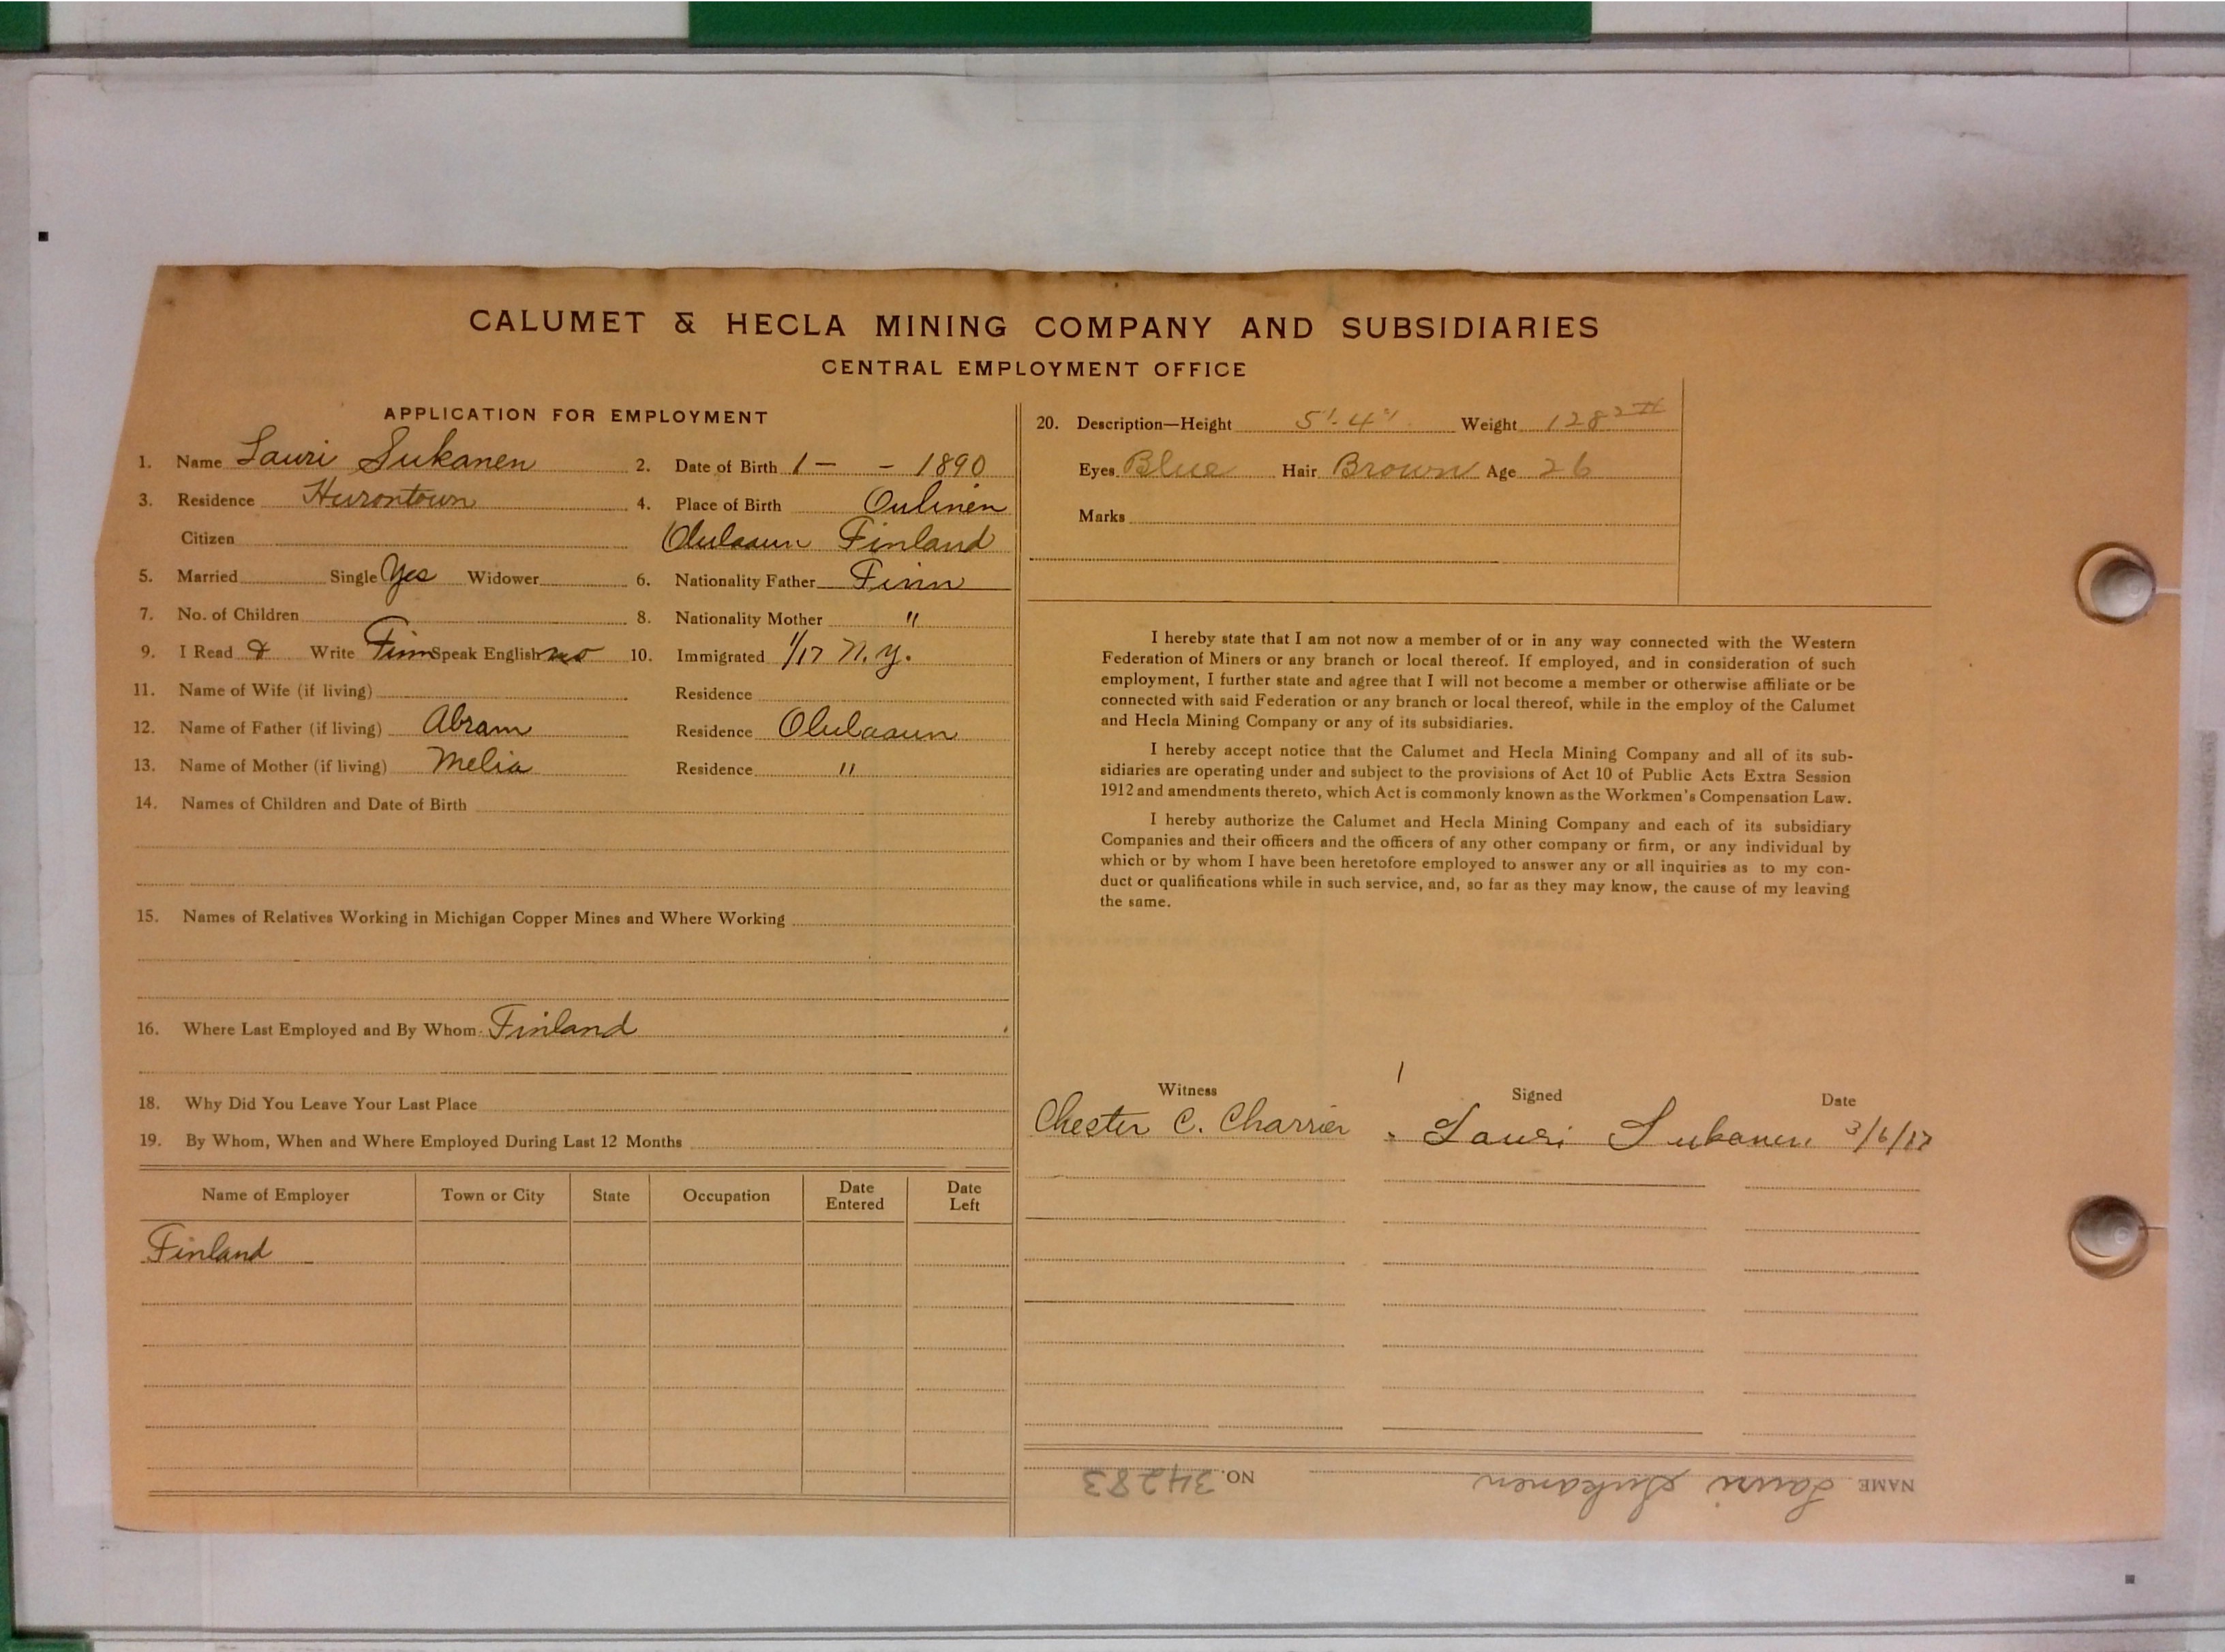 CALUMET & HECLA MINING COMPANY AND SUBSIDIARIES
CENTRAL EMPLOYMENT OFFICE
APPLICATION FOR EMPLOYMENT
1. Name Lauri Sukanen 2. Date of Birth 1 - - 1890
3. Residence Hurontown 4. Place of Birth Oulinen
Citizen Olulaaun Finland
5. Married Single Yes Widower 6. Nationality Father Finn
7. No. of Children 8. Nationality Mother "
9. I Read & Write Finn Speak English no 10. Immigrated 1/17 N.Y.
11. Name of Wife (if living) Residence
12. Name of Father (if living) Abram Residence Olulaaun
13. Name of Mother (if living) Melia Residence "
14. Names of Children and Date of Birth
15. Names of Relatives Working in Michigan Copper Mines and Where Working
16. Where Last Employed and By Whom Finland
18. Why Did You Leave Your Last Place
19. By Whom, When and Where Employed During Last 12 Months
Name of Employer Town or City State Occupation Date Entered Date Left
Finland
20. Description—Height 5'. 4" Weight 128
Eyes Blue Hair Brown Age 26
Marks
I hereby state that I am not now a member of or in any way connected with the Western
Federation of Miners or any branch or local thereof. If employed, and in consideration of such
employment, I further state and agree that I will not become a member or otherwise affiliate or be
connected with said Federation or any branch or local thereof, while in the employ of the Calumet
and Hecla Mining Company or any of its subsidiaries.
I hereby accept notice that the Calumet and Hecla Mining Company and all of its sub-
sidiaries are operating under and subject to the provisions of Act 10 of Public Acts Extra Session
1912 and amendments thereto, which Act is commonly known as the Workmen's Compensation Law.
I hereby authorize the Calumet and Hecla Mining Company and each of its subsidiary
Companies and their officers and the officers of any other company or firm, or any individual by
which or by whom I have been heretofore employed to answer any or all inquiries as to my con-
duct or qualifications while in such service, and, so far as they may know, the cause of my leaving
the same.
Witness Signed Date
Chester C. Charrier Lauri Sukanen 3/6/17
NAME Lauri Sukanen NO. 34283